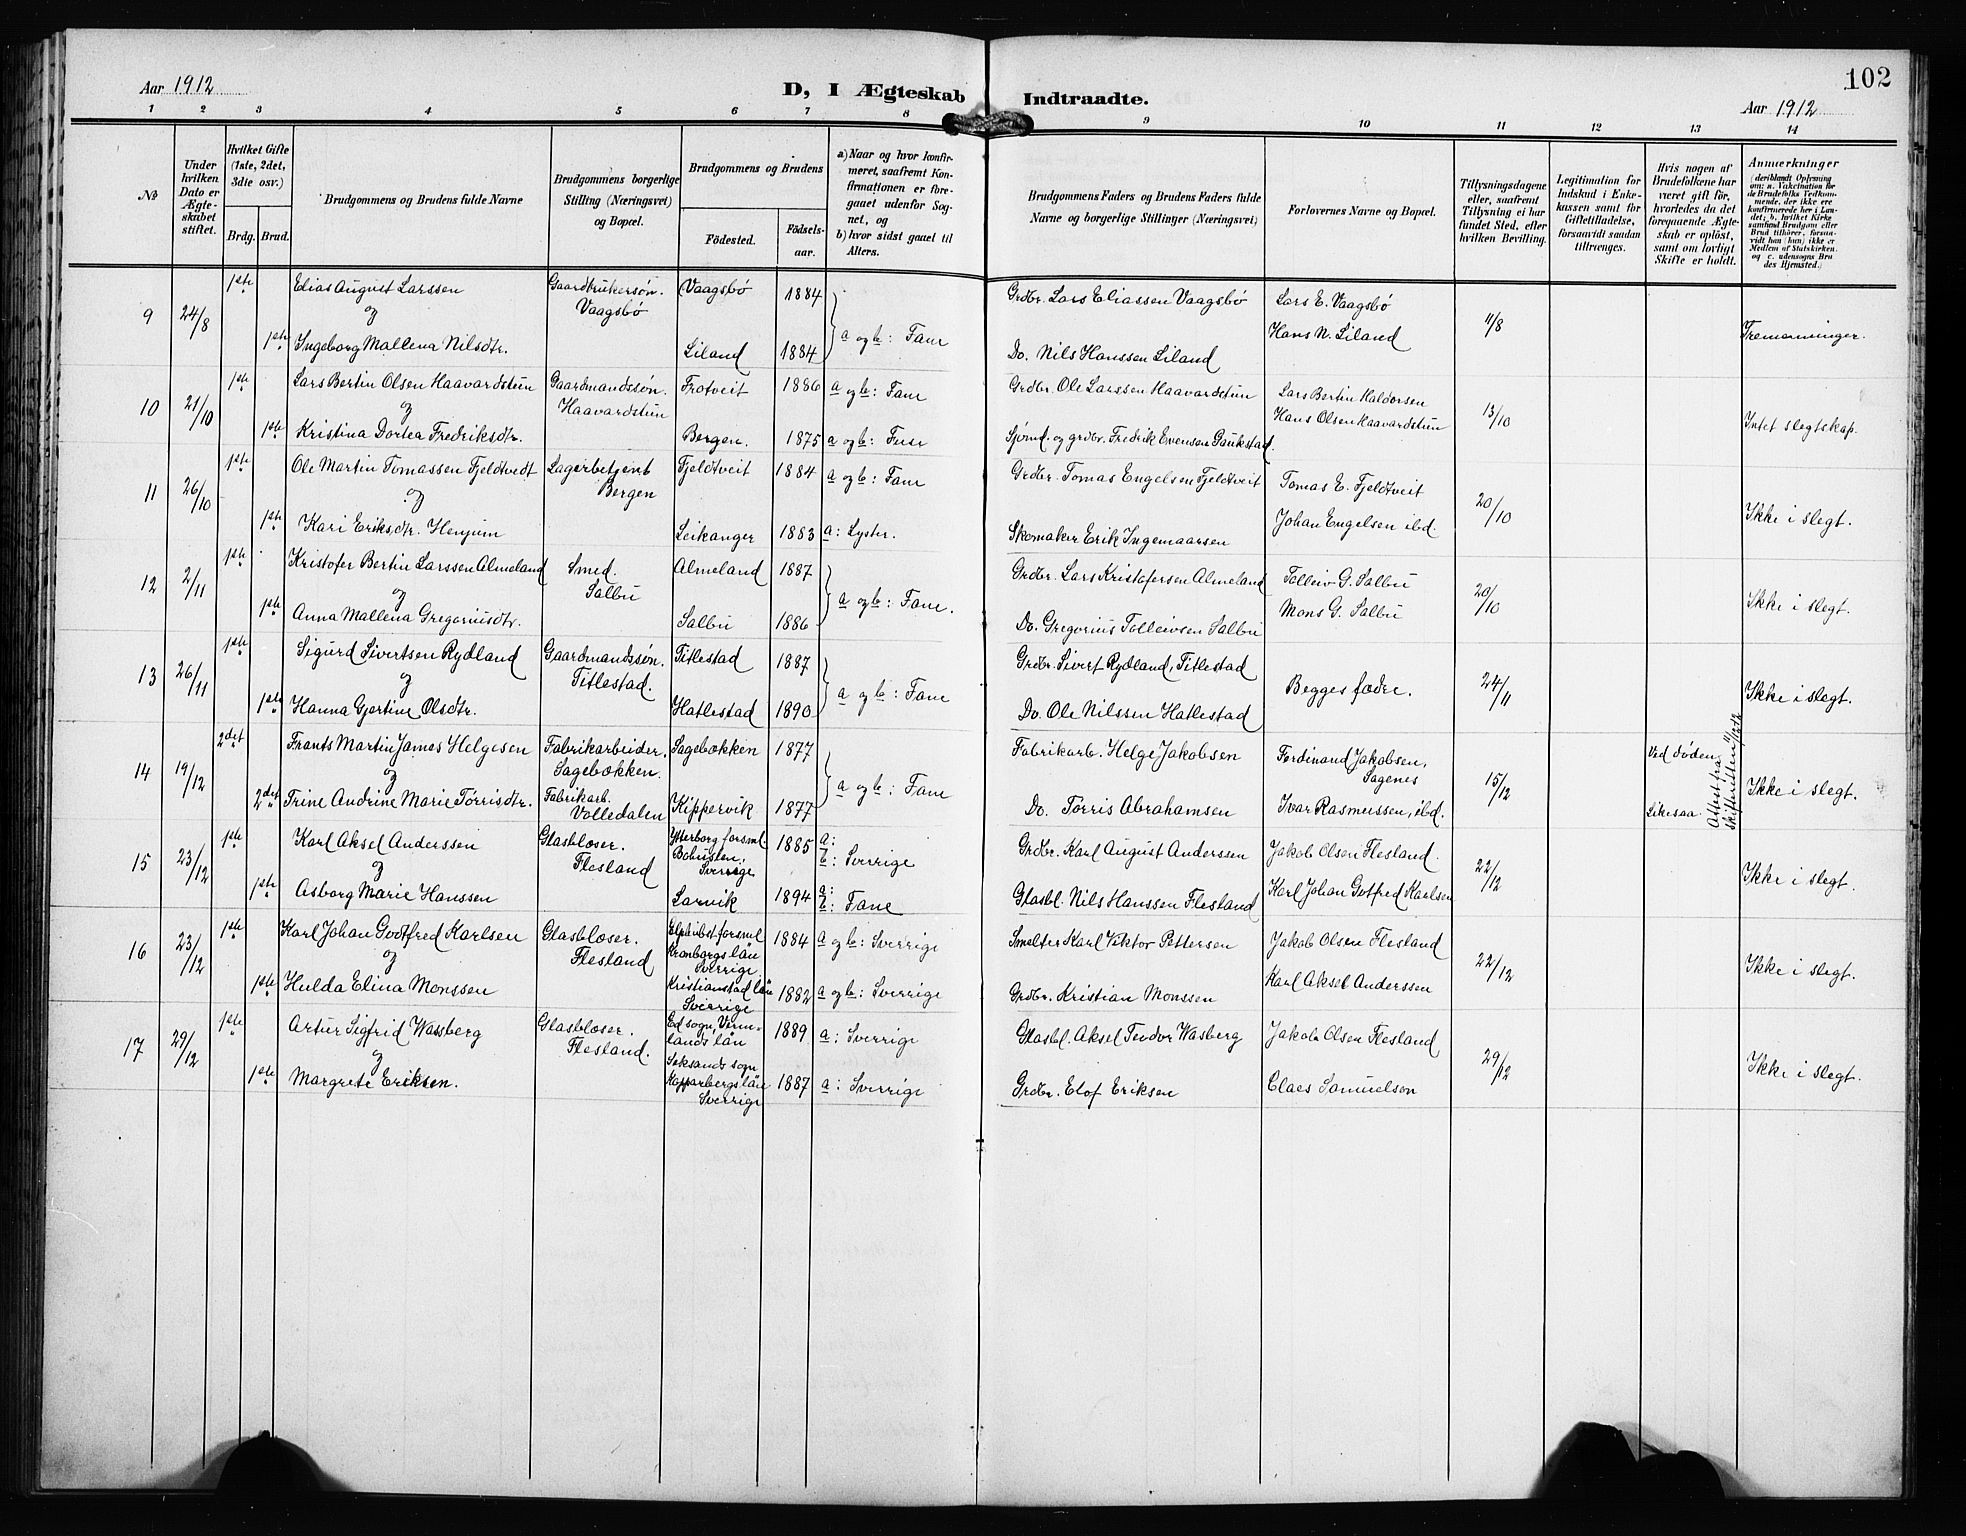 102
Aar 1912
D, I Ægteskab Indtraadte.
Aar 1912
1 2 3 4 5 6 7 8 9 10 11 12 13 14
№
Under hvilken Dato er Ægteskabet stiftet.
Hvilket Gifte (1ste, 2det, 3die osv.)
Brdg. Brud.
Brudgommens og Brudens fulde Navne
Brudgommens borgerlige Stilling (Næringsvei) og Bopæl.
Brudgommens og Brudens
Födested. Födselsaar.
a) Naar og hvor konfirmeret, saafremt Konfirmationen er foregaaet udenfor Sognet, og
b) hvor sidst gaaet til Alters.
Brudgommens Faders og Brudens Faders fulde Navne og borgerlige Stillinger (Næringsvei)
Forlovernes Navne og Bopæl.
Tillysningsdagene eller, saafremt Tillysning ei har fundet Sted, efter hvilken Bevilling.
Legitimation for Indskud i Enkekassen samt for Giftetilladelse, forsaavidt saadan tiltrænges.
Hvis nogen af Brudefolkene har været gift för, hvorledes da det foregaaende Ægteskab er oplöst, samt om lovligt Skifte er holdt.
Anmærkninger (deriblandt Oplysning om: a. Vakcination for de Brudefolks Vedkommende, der ikke ere konfirmerede her i Landet; b. hvilket Kirkesamfund Brudgom eller Brud tilhörer, forsaavidt han (hun) ikke er Medlem af Statskirken, og c. udensogns Brudes Hjemsted.)
9 24/8 1ste Elias August Larssen Gaardbrukersøn. Vaagsbø 1884 Grdbr. Lars Eliassen Vaagsbø Lars E. Vaagsbø 11/8
og Vaagsbø a og b: Fane Tremenninger.
1ste Ingeborg Mallena Nilsdtr. Liland 1884 Do. Nils Hanssen Liland Hans N. Liland
10 21/10 1ste Lars Bertin Olsen Haavardstun Gaardmandssøn. Frotveit 1886 a og b: Fane Grdbr. Ole Larssen Haavardstun Lars Bertin Haldorsen 13/10
og Haavardstun Hans Olsen Haavardstun Intet slegtskap.
1ste Kristina Dortea Fredriksdtr. Bergen. 1875 a og b: Fuse Sjømd. og grdbr. Fredrik Evensen Gaukstad.
11 26/10 1ste Ole Martin Tomassen Fjeldtvedt Lagerbetjent Fjeldtveit 1884 a og b: Fane Grdbr. Tomas Engelsen Fjeldtveit Tomas E. Fjeldtveit 20/10
og Bergen
1ste Kari Eriksdtr. Henjum Leikanger 1883 a: Lyster. Skomaker Erik Ingemaarsen Johan Engelsen ibd. Ikke i slegt.
12 2/11 1ste Kristofer Bertin Larssen Almeland Smed. Almeland 1887 Grdbr. Lars Kristofersen Almeland Tolleiv G. Salbu 20/10
og Salbu a og b: Fane. Ikke i slegt.
1ste Anna Mallena Gregoriusdtr. Salbu 1886 Do. Gregorius Tolleivsen Salbu Mons G. Salbu
13 26/11 1ste Sigurd Sivertsen Rydland Gaardmandssøn. Titlestad 1887 Grdbr. Sivert Rydland, Titlestad Begges fædre. 24/11
og Titlestad. a og b: Fane Ikke i slegt.
1ste Hanna Gjertine Olsdtr. Hatlestad 1890 Do. Ole Nilssen Hatlestad
14 19/12 2det Frants Martin James Helgesen Fabrikarbeider. Sagebækken 1877 Fabrikarb. Helge Jakobsen Ferdinand Jakobsen, 15/12 Ved døden
og Sagebækken. a og b: Fane Sagenes Ikke i slegt.
2det Trine Andrine Marie Tørrisdtr. Fabrikarb. Volledalen Kippervik 1877 Do. Tørris Abrahamsen Ivar Rasmussen, ibd. Likesaa.
Attest fra skifteretten 11/12 12
15 23/12 1ste Karl Aksel Anderssen Glasblæser. Ytterborg forsml. Bohuslen, Sverrige 1885 a: b: Sverrige Grdbr. Karl August Anderssen Jakob Olsen Flesland. 22/12
og Flesland Ikke i slegt.
1ste Asborg Marie Hanssen Larvik 1894 a: b: Fane Glasbl. Nils Hanssen Flesland Karl Johan Gotfred Karlsen
16 23/12 1ste Karl Johan Godtfred Karlsen Glasblæser. forsml Kronbergs län Sverrige 1884 a og b: Sverrige Smelter Karl Viktor Pettersen Jakob Olsen Flesland 22/12
og Flesland Ikke i slegt.
1ste Hulda Elina Monssen Kristianstad län Sverrige 1882 a og b: Sverrige Grdbr. Kristian Monssen Karl Aksel Anderssen
17 29/12 1ste Artur Sigfrid Wassberg Glasblæser. Ed sogn, Vermlands län 1889 a: Sverrige Glasbl. Aksel Teodor Wasberg Jakob Olsen Flesland 29/12
og Flesland. Ikke i slegt.
1ste Margrete Eriksen. Seksands sogn Kopparbergs län Sverrige 1887 a: Sverrige Grdbr. Elof Eriksen Claes Samuelson